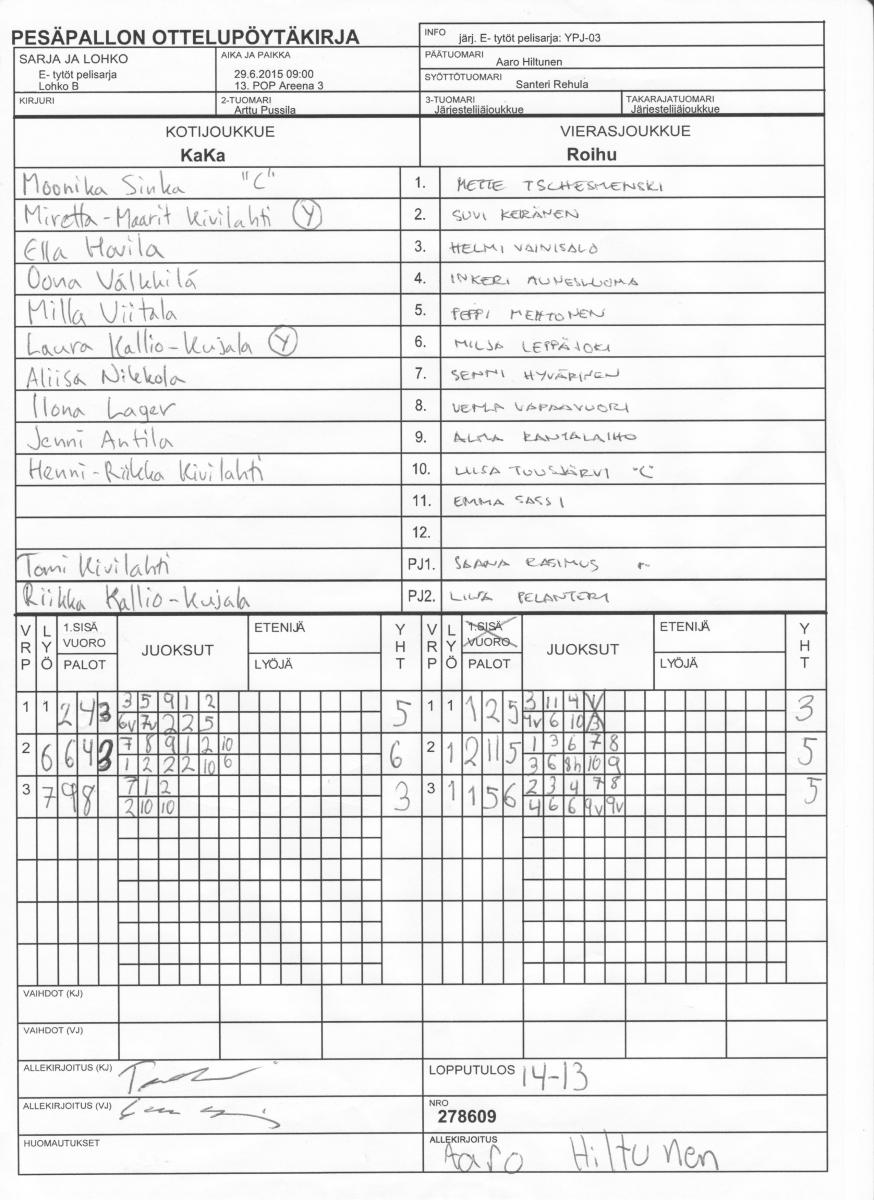 PESÄPALLON OTTELUPÖYTÄKIRJA
INFO järj. E- tytöt pelisarja: YPJ-03
SARJA JA LOHKO
E- tytöt pelisarja
Lohko B
AIKA JA PAIKKA
29.6.2015 09:00
13. POP Areena 3
PÄÄTUOMARI
Aaro Hiltunen
SYÖTTÖTUOMARI
Santeri Rehula
KIRJURI
2-TUOMARI
Arttu Pussila
3-TUOMARI
Järjestelijäjoukkue
TAKARAJATUOMARI
Järjestelijäjoukkue
KOTIJOUKKUE
KaKa
VIERASJOUKKUE
Roihu
Moonika Sinka "C" 1. METTE TSCHESMENSKI
Miretta-Maarit Kivilahti Y 2. SUVI KERÄNEN
Ella Havila 3. HELMI VAINISALO
Oona Välkkilä 4. INKERI AUNESLUOMA
Milla Viitala 5. PEPPI MEHTONEN
Laura Kallio-Kujala Y 6. MILJA LEPPÄJOKI
Aliisa Nikkola 7. SENNI HYVÄRINEN
Ilona Lager 8. VENLA VAPAAVUORI
Jenni Antila 9. ALMA RANTALAIHO
Henni-Riikka Kivilahti 10. LIISA TUUSJÄRVI "C"
11. EMMA SASSI
12.
Tomi Kivilahti PJ1. SAANA RASIMUS
Riikka Kallio-Kujala PJ2. LIISA PELANTERI
VRP LYÖ 1.SISÄ VUORO PALOT JUOKSUT ETENIJÄ LYÖJÄ YHT VRP LYÖ 1.SISÄ VUORO PALOT JUOKSUT ETENIJÄ LYÖJÄ YHT
1 1 2 4 3 3 5 9 1 2 5 1 1 1 2 5 3 11 4 V 3
6v 7v 2 2 5 4v 6 10 3
2 6 6 4 3 7 8 9 1 2 10 6 2 1 2 11 5 1 3 6 7 8 5
1 2 2 2 10 6 3 6 8h 10 9
3 7 9 8 7 1 2 3 3 1 1 5 6 2 3 4 7 8 5
2 10 10 4 6 6 9v 9v
VAIHDOT (KJ)
VAIHDOT (VJ)
ALLEKIRJOITUS (KJ)
LOPPUTULOS 14-13
ALLEKIRJOITUS (VJ)
NRO
278609
HUOMAUTUKSET
ALLEKIRJOITUS
Aaro Hiltunen